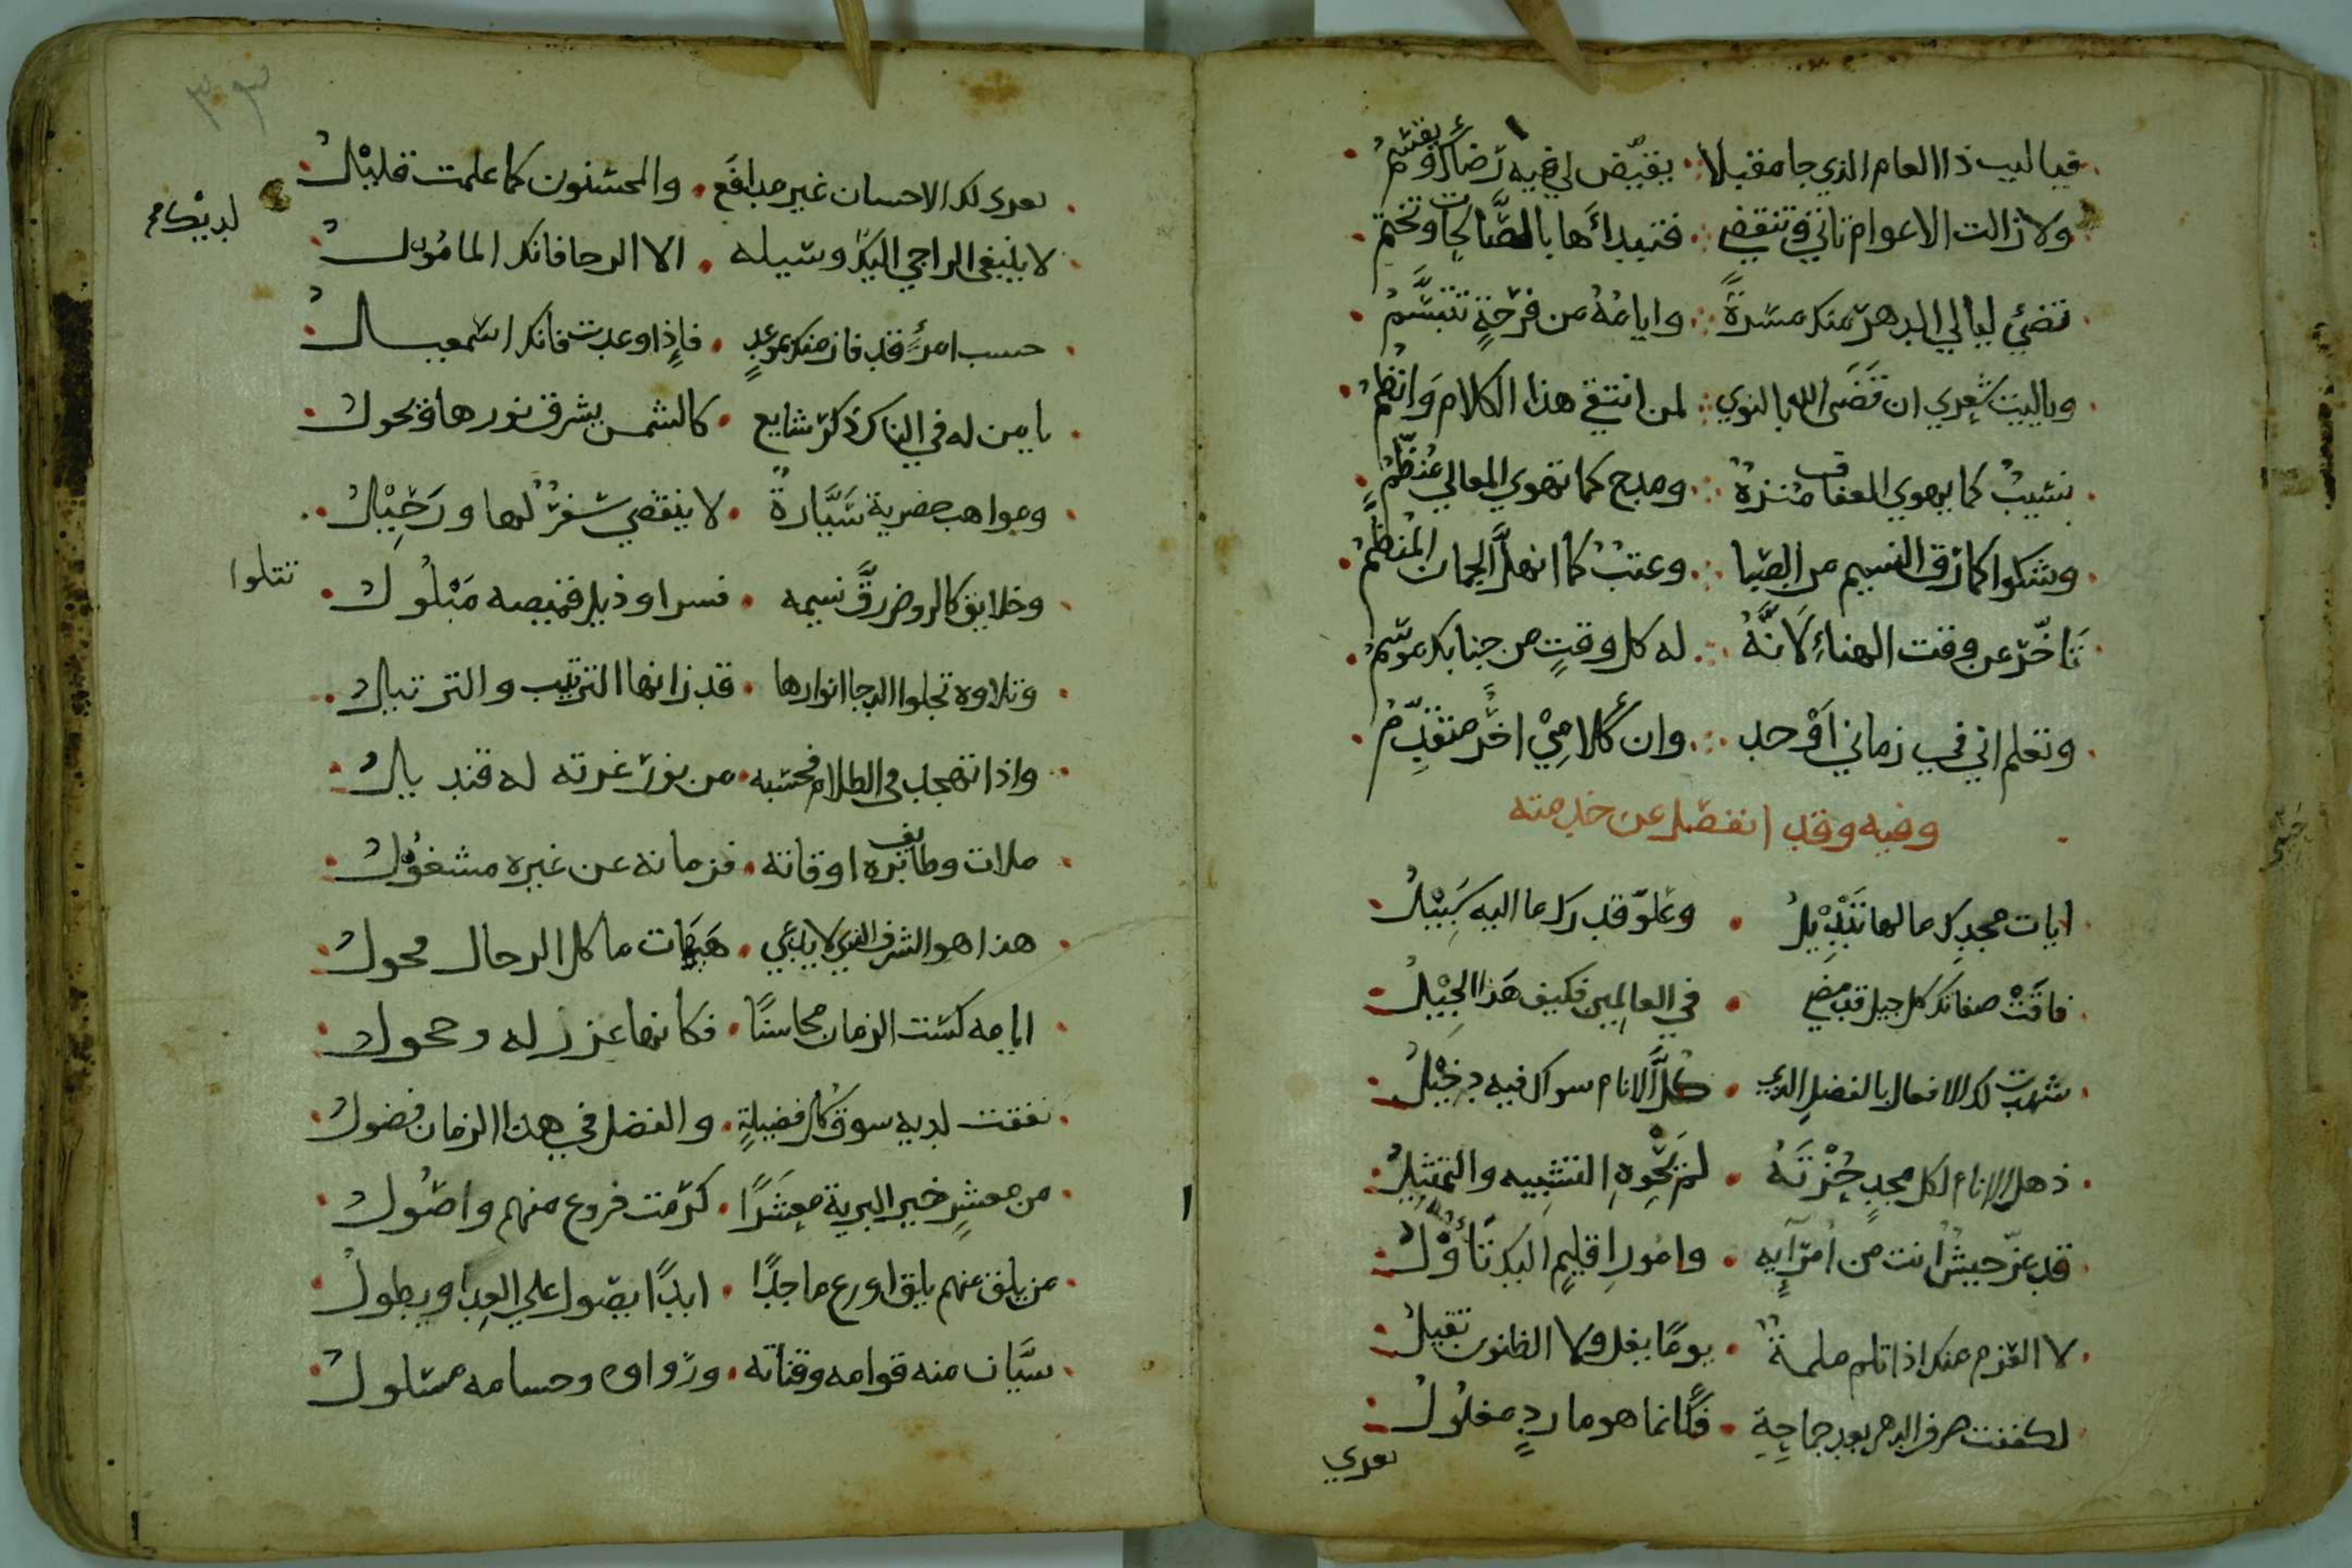 فيا ليت ذا العام الذي جا مقبلا يقيّض لي فيه رضاك ويقسم
ولا زالت الاعوام تاتي وتنقضي فتبدأها بالصَّالحات وتختم
تضئي ليالي الدهر منك مسرةً وايامُهُ من فرحةٍ تتبسَّمُ
وياليت شعري ان قَضَى الله بالنوي لمن انتقي هذا الكلام وَانظمُ
نسيبٌ كما يهوي العفاف منزهٌ ومدح كما تهوي المعالي مُنظّمُ
وشكوا كما رقّ النسيم من الصَّبا وعتبٌ كما انهلَّ الجمان المنظمُ
تَاخّر عن وقت الهناءِ لَانَّهُ له كل وقتٍ من جنابك موسمُ
وتعلم اني في زماني اَوْحد وان كلامِيْ اخر متقدِّمُ
وفيه وقد انفصل عن خدمته
ايات مجدك ما لها تَبْدِيْلُ وعلوّ قدرك ما اليه سَبِيْلُ
فاقَتْ صفاتك كل جيل قد مضي في العالمين فكيف هَذا الجِيْلُ
شهدت لك الافعال بالفضلِ الذي كُلُّ الانام سواك فيه دخِيْلُ
ذهل الانام لكل مجدٍ حُزْتَهُ لمْ يَحْوِهِ التشبيه والتمثيلُ
قد عزّ جيشٌ انت من اُمرَآيِهِ وامُور اِقليمٍ اليك تَأُوْلُ
لا العزم منك اذا تلم ملمةٌ يومًا يفل ولا الظنون تفيلُ
لكففت صرف الدهر بعد جماحِهِ فكانما هو ماردٍ مغلُوْلُ
تعدي
تعدى لك الاحسان غير مدافَع والمحسنون كما علمت قليْلُ
لا يبتغي الراجي اليك وسيله الا الرجا فانك المامُوْلُ
لديكم
حسب امرئٍ قد فاز منك بموعدٍ فإِذا وعدت فانك اسمعيلُ
يا من له في الناس ذكر شايع كالشمس يشرق نورها ويجولُ
ومواهب حضرية سَيَّارةٌ لا ينقضي سفرٌ لها ورَحِيْلُ
وخلايق كالروض رقَّ نسيمه فسرا وذيل قميصه مَبْلُولُ
تتلوا
وتلاوه تجلوا الدجا انوارها قد زانها الترتيب والترتيلُ
واذا تهجد في الظلام فحسبه من نور غرته له قنديلُ
ملات وظايف بره اوقاته فزمانه عن غيره مشغوُلُ
هذا هو الشرف الذي لا يدعي هَيهَات ما كل الرجال فحولُ
ايامه كست الزمان محاسنًا فكانها غرر له وحجولُ
نفقت لديه سوق كل فضيلةٍ والفضل في هذا الزمان فضولُ
من معشرٍ خير البرية معشَرًا كرمت فروع منهم واصُولُ
من يلق منهم يلق اورع ماجدًا ابدًا يصول علي العِدا ويطولُ
سيَّان منه قوامه وقناته ورُواوه وحسامه مسلولُ